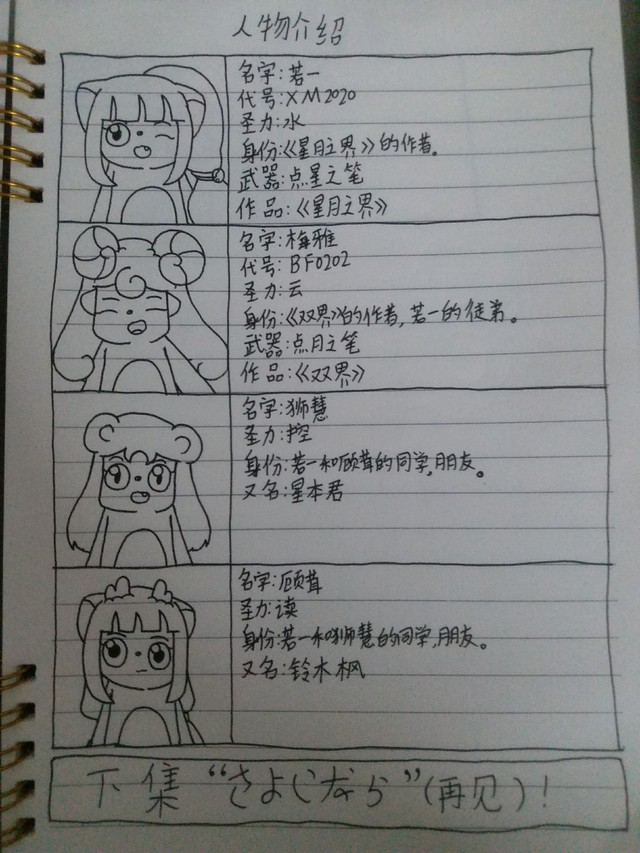 人物介绍
名字:若一
代号:XM2020
圣力:水
身份:《星月之界》的作者。
武器:点星之笔
作品:《星月之界》
名字:梅雅
代号:BF0202
圣力:云
身份:《双界》的作者,若一的徒弟。
武器:点月之笔
作品:《双界》
名字:狮慧
圣力:控
身份:若一和顾茸的同学,朋友。
又名:星本君
名字:顾茸
圣力:读
身份:若一和狮慧的同学,朋友。
又名:铃木枫
下集“さよじなら”(再见)!